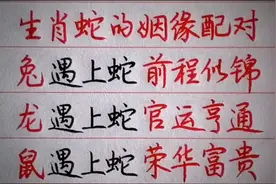 生肖蛇的姻缘配对
兔遇上蛇前程似锦
龙遇上蛇官运亨通
鼠遇上蛇荣华富贵